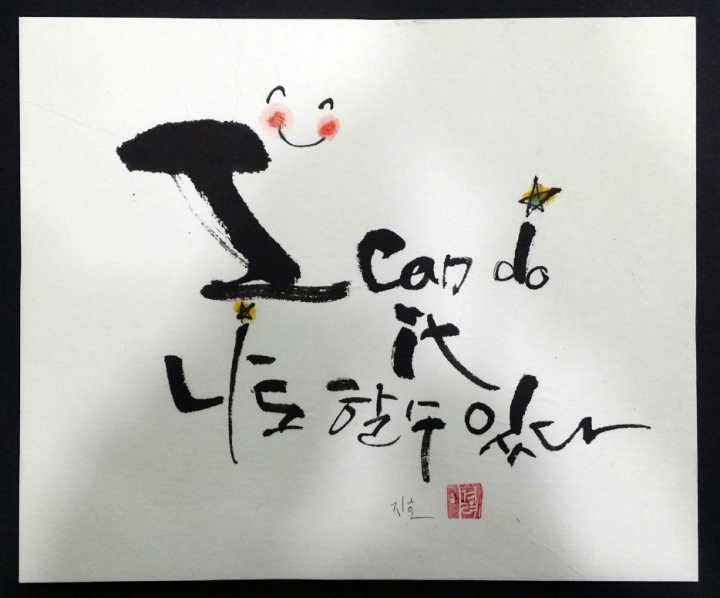 I can do
it
나도 할 수 있다
지호